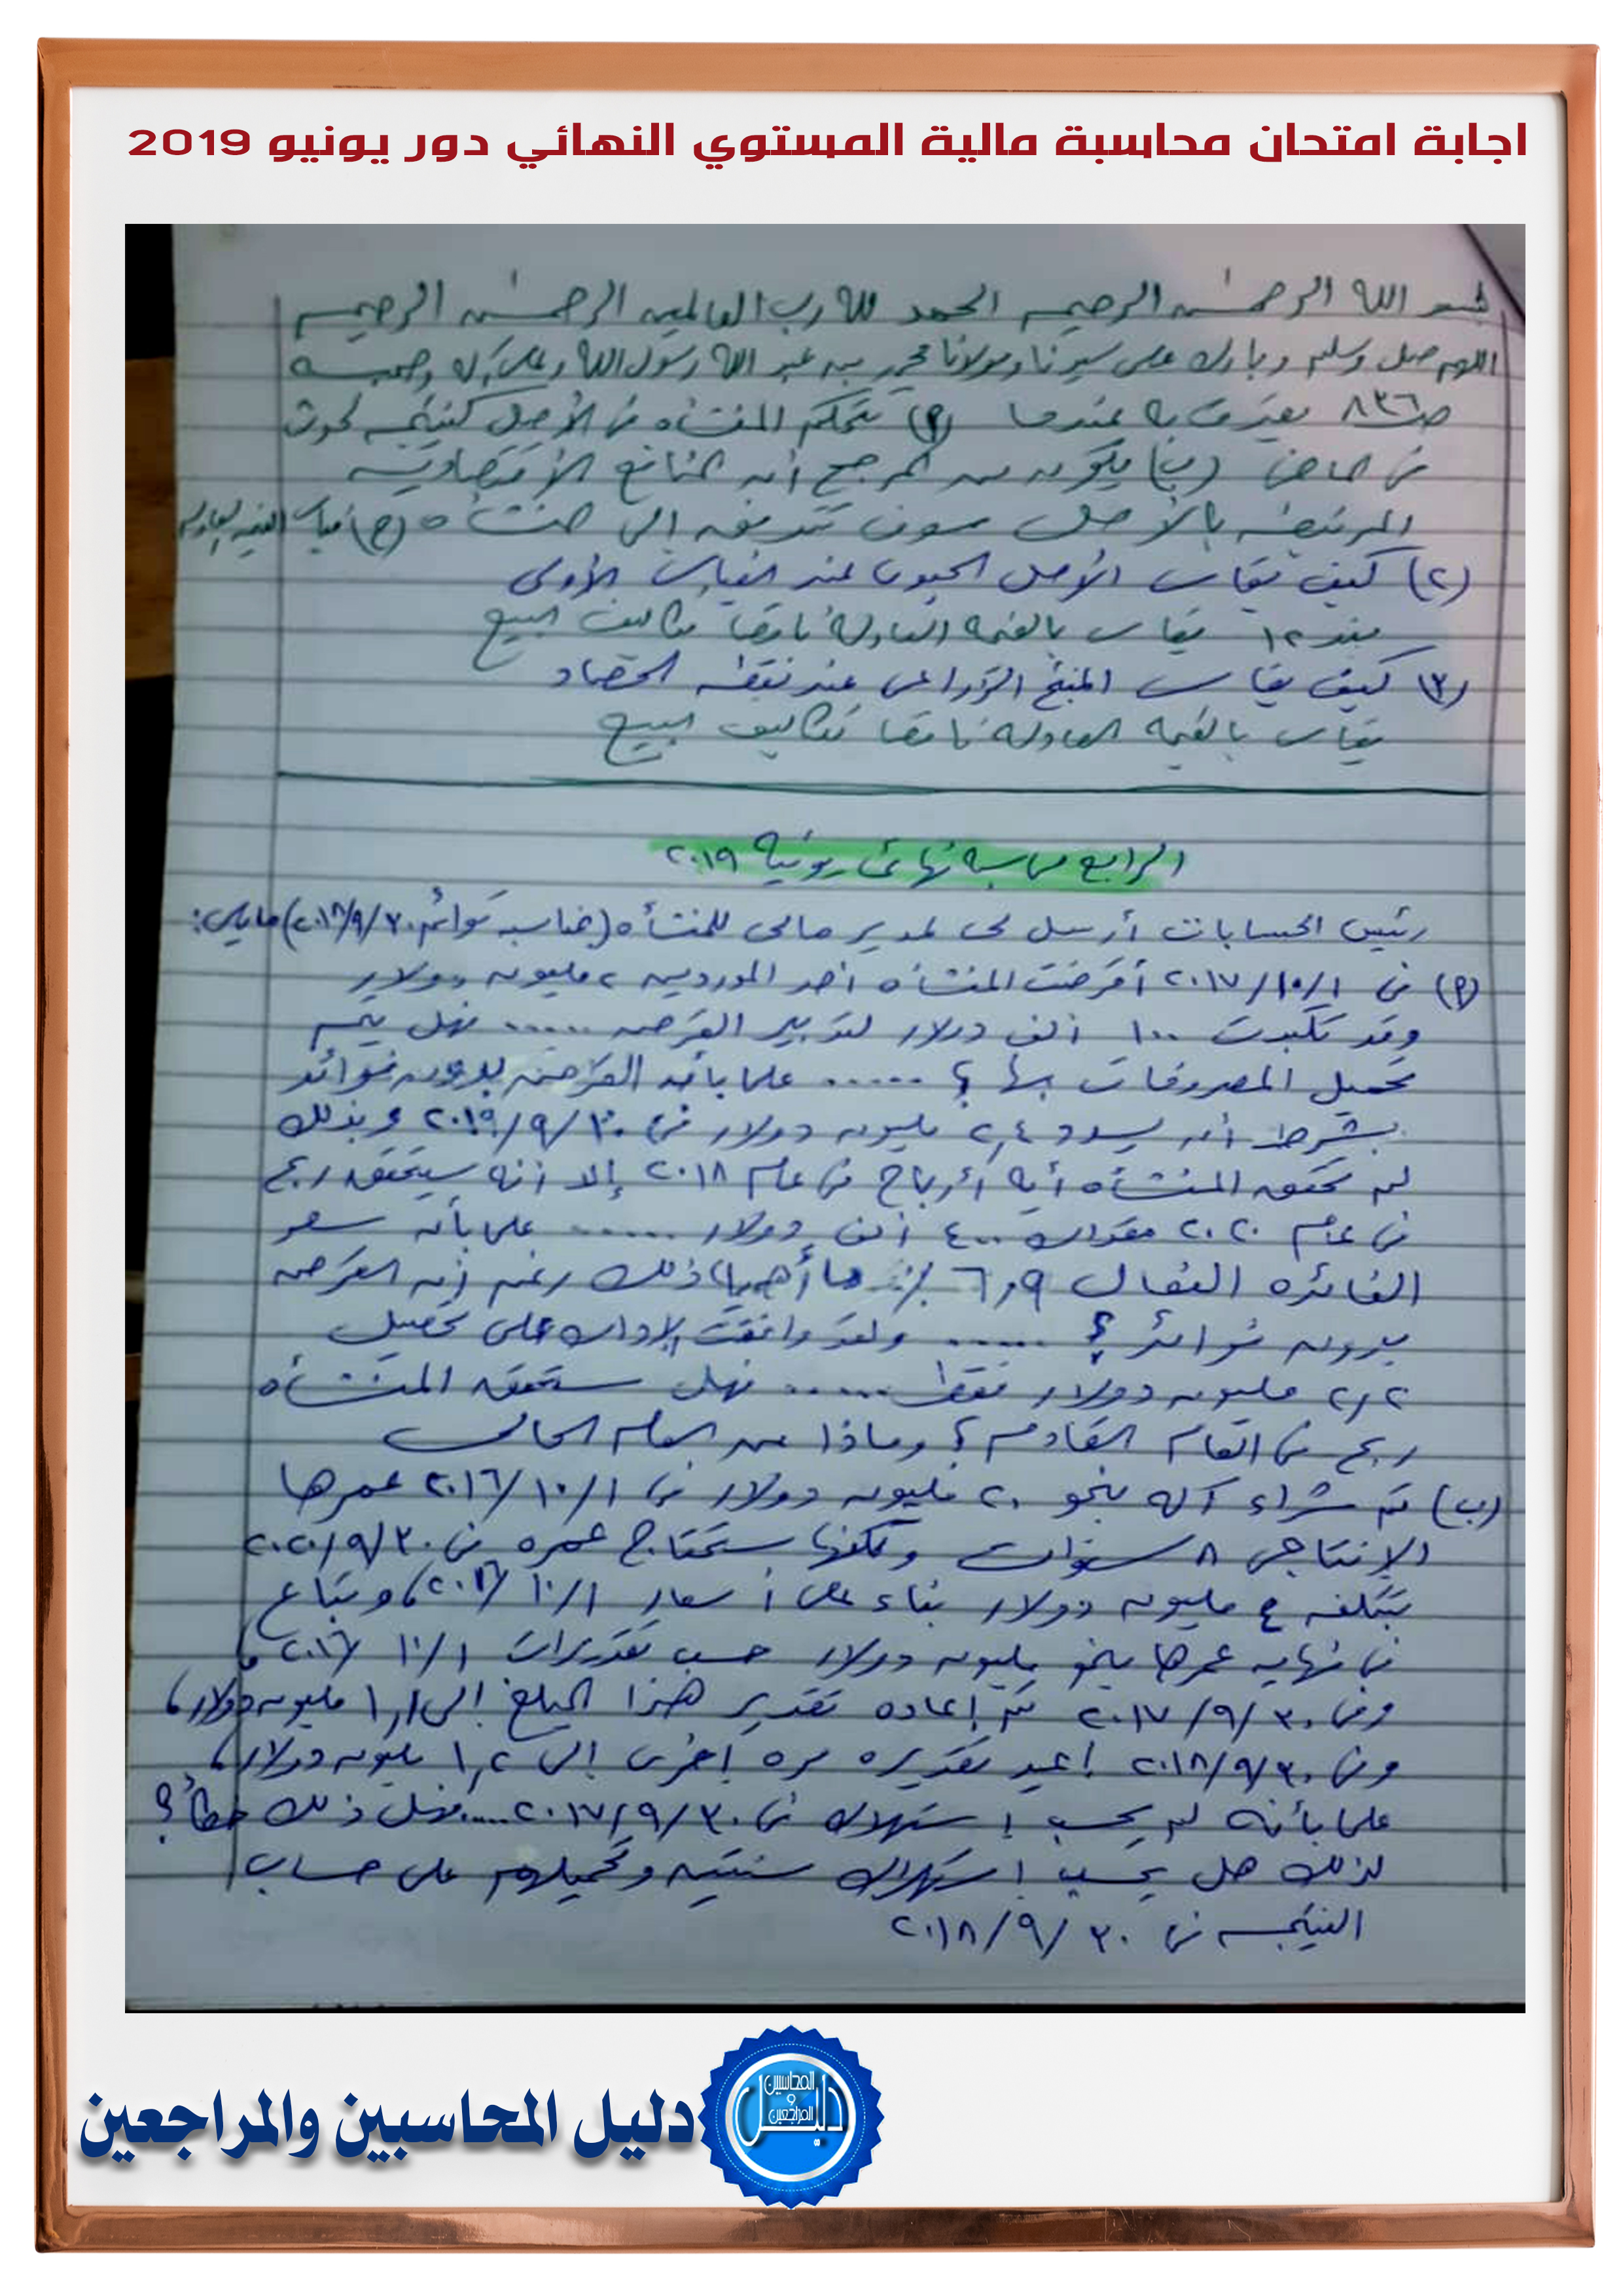 اجابة امتحان محاسبة مالية المستوي النهائي دور يونيو 2019
بسم الله الرحمن الرحيم الحمد لله رب العالمين الرحمن الرحيم
اللهم صل وسلم وبارك على سيدنا ومولانا محمد بن عبد الله رسول الله وعلى آله وصحبه
ص ٨٣٦ يعترف به عندما (أ) تتحكم المنشأه فى الأصل كنتيجه لحدث
فى الماضى (ب) يكون من المرجح أن المنافع الأقتصادية
المرتبطه بالأصل سوف تتدفق الى المنشأه (ج) قياس القيمه العادله
(٢) كيف يقاس الأصل الحيوى عند القياس الأولى
بند ١٢ يقاس بالقيمه العادلة ناقصا تكاليف البيع
(٣) كيف يقاس المنتج الزراعى عند نقطه الحصاد
يقاس بالقيمه العادله ناقصا تكاليف البيع
الرابع محاسبة نهائى يونية ٢٠١٩
رئيس الحسابات أرسل لى لمدير مالى للمنشأه (بمناسبه قوائم ٢٠١٨/٩/٣٠) مايلى:
(أ) فى ٢٠١٧/١٠/١ أقرضت المنشأه أحد الموردين ٢ مليون دولار
وقد تكبدت ١٠٠ ألف دولار لتدبير القرض ..... فهل يتم
تحميل المصروفات بها ؟ ..... علما بأن القرض بدون فوائد
بشرط أن يسدد ٢,٤ مليون دولار فى ٢٠١٩/٩/٣٠ وبذلك
لم تحقق المنشأه أيه أرباح فى عام ٢٠١٨ إلا أنه سيتحقق ربح
فى عام ٢٠٢٠ مقداره ٤٠٠ ألف دولار ...... علما بأن سعر
الفائده الفعال ٦,٩ ٪ ما أهمية ذلك رغم أن القرض
بدون فوائد ؟ ..... ولقد وافقت الإداره على تحصيل
٢,٢ مليون دولار فقط ..... فهل ستحقق المنشأه
ربح فى العام القادم ؟ وماذا عن العام الحالى
(ب) تم شراء آله بنحو ٢٠ مليون دولار فى ٢٠١٦/١٠/١ عمرها
الإنتاجى ٨ سنوات ولكنها ستحتاج عمره فى ٢٠٢٠/٩/٣٠
بتكلفه ٤ مليون دولار بناء على أسعار ٢٠١٦/١٠/١، وتباع
فى نهايه عمرها بنحو مليون دولار حسب تقديرات ٢٠١٦/١٠/١
وفى ٢٠١٧/٩/٣٠ تم إعاده تقدير هذا المبلغ إلى ١,١ مليون دولار،
وفى ٢٠١٨/٩/٣٠ أعيد تقديره مره أخرى إلى ١,٢ مليون دولار،
علما بأنه لم يحسب إستهلاك فى ٢٠١٧/٩/٣٠ .... فهل ذلك خطأ ؟
لذلك هل يحسب إستهلاك سنتين وتحميلهم على حساب
النتيجه فى ٢٠١٨/٩/٣٠
دليل المحاسبين والمراجعين
دليل
المحاسبين
و
المراجعين